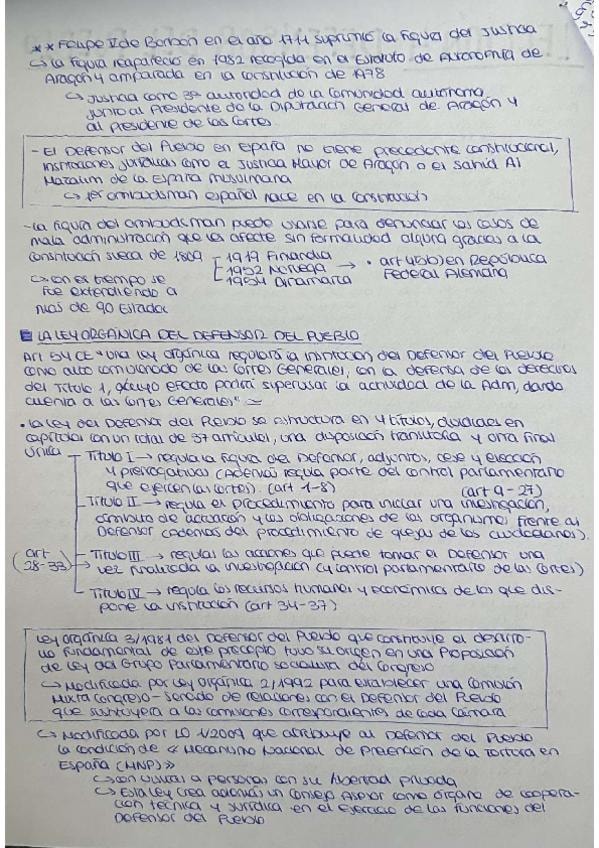 ** Felipe V de Borbón en el año 1711 suprimió la figura del Justicia
↳ la figura reapareció en 1982 recogida en el Estatuto de Autonomía de
Aragón y amparada en la constitución de 1978
↳ Justicia como 3ª autoridad de la Comunidad autónoma,
junto al Presidente de la Diputación General de Aragón y
al presidente de las Cortes.
- El Defensor del Pueblo en España no tiene precedente constitucional,
instituciones jurídicas como el Justicia Mayor de Aragón o el Sahid Al
Mazalim de la España musulmana
↳ 1er ombudsman español nace en la constitución
- La figura del ombudsman puede usarse para denunciar los casos de
mala administración que les afecte sin formalidad alguna gracias a la
constitución sueca de 1809
1919 Finlandia
1952 Noruega → • art 45(b) en República
1954 Dinamarca Federal Alemana
↳ en es tiempo se
fue extendiendo a
más de 90 Estados
LA LEY ORGÁNICA DEL DEFENSOR DEL PUEBLO
Art 54 CE "una ley orgánica regulará la institución del Defensor del Pueblo
como alto comisionado de las Cortes Generales, con la defensa de los derechos
del Título 1, a cuyo efecto podrá supervisar la actividad de la Adm, dando
cuenta a las Cortes Generales"
• La ley del Defensor del Pueblo se estructura en 4 títulos, divididos en
capítulos con un total de 37 artículos, una disposición transitoria y otra final
única
Título I → regula la figura del Defensor, adjuntos, cese y elección
y prerrogativas (además regula parte del control parlamentario
que ejercen las cortes). (art 1-8) (art 9-27)
Título II → regula el procedimiento para iniciar una investigación,
ámbito de actuación y las obligaciones de los organismos frente al
Defensor (además del procedimiento de quejas de los ciudadanos).
(art 28-33) Título III → regulas las acciones que puede tomar el Defensor una
vez finalizada la investigación (y control parlamentario de las Cortes)
Título IV → regula los recursos humanos y económicos de los que dis-
pone la institución (art 34-37)
Ley orgánica 3/1981 del Defensor del Pueblo que constituye el desarro-
llo fundamental de este precepto tuvo su origen en una Proposición
de Ley del Grupo Parlamentario socialista del Congreso
↳ Modificada por Ley orgánica 2/1992 para establecer una Comisión
Mixta Congreso-Senado de relaciones con el Defensor del Pueblo
que sustituyera a las comisiones correspondientes de cada Cámara
↳ Modificada por LO 1/2009 que atribuye al Defensor del Pueblo
la condición de « Mecanismo Nacional de Prevención de la Tortura en
España (MNP)»
↳ con visitas a personas con su libertad privada
↳ Esta ley crea además un Consejo Asesor como órgano de coopera-
ción técnica y jurídica en el ejercicio de las funciones del
Defensor del Pueblo